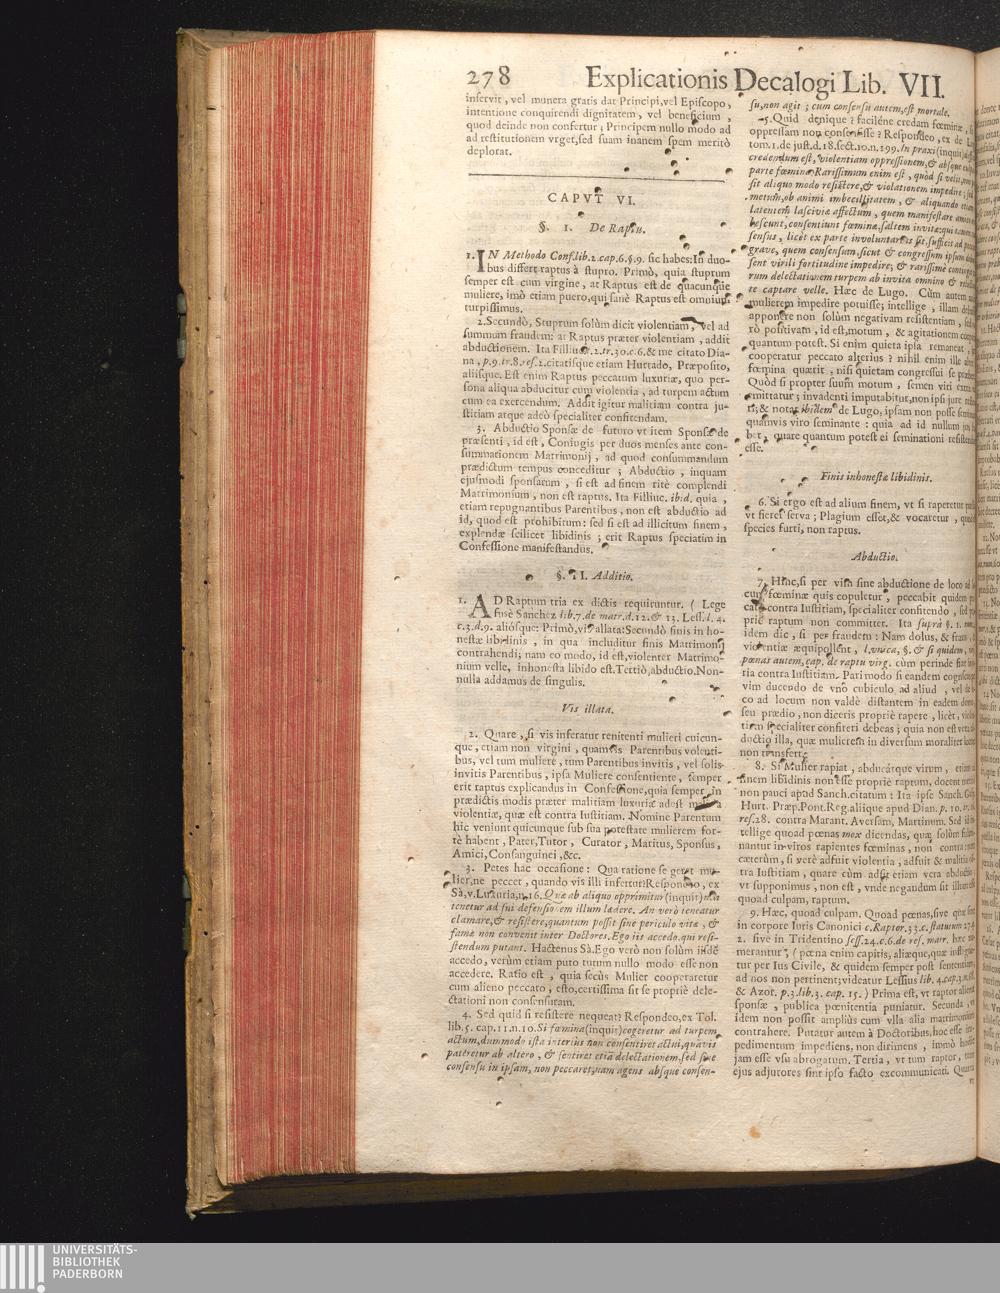 278 Explicationis Decalogi Lib. VII.
inſervit, vel munera gratis dat Principi, vel Epiſcopo,
intentione conquirendi dignitatem, vel beneficium,
quod deinde non confertur; Principem nullo modo ad
ad reſtitutionem vrget, ſed ſuam inanem ſpem meritò
deplorat.
CAPVT VI.
§. I. De Raptu.
1. IN Methodo Conf. lib. 2. cap. 6. §. 9. ſic habes: In duo-
bus differt raptus à ſtupro. Primò, quia ſtuprum
ſemper eſt cum virgine, at Raptus eſt de quacunque
muliere, imò etiam puero, qui ſanè Raptus eſt omnium
turpiſſimus.
2. Secundò, Stuprum ſolùm dicit violentiam, vel ad
ſummum fraudem: at Raptus præter violentiam, addit
abductionem. Ita Filliuc. tr. 30. c. 6. & me citato Dia-
na, p. 9. tr. 8. reſ. 2. citatiſque etiam Hurtado, Præpoſito,
aliiſque. Eſt enim Raptus peccatum luxuriæ, quo per-
ſona aliqua abducitur cum violentia, ad turpem actum
cum ea exercendum. Addit igitur malitiam contra ju-
ſtitiam atque adeò ſpecialiter confitendam.
3. Abductio Sponſæ de futuro vt item Sponſæ de
præſenti, id eſt, Coniugis per duos menſes ante con-
ſummationem Matrimonij, ad quod conſummandum
prædictum tempus conceditur; Abductio, inquam
ejuſmodi ſponſarum, ſi eſt ad finem ritè complendi
Matrimonium, non eſt raptus. Ita Filliuc. ibid. quia,
etiam repugnantibus Parentibus, non eſt abductio ad
id, quod eſt prohibitum: ſed ſi eſt ad illicitum finem,
explendæ ſcilicet libidinis; erit Raptus ſpeciatim in
Confeſſione manifeſtandus.
§. II. Additio.
1. AD Raptum tria ex dictis requiruntur. (Lege
fusè Sanchez lib. 7. de matr. d. 12. & 13. Leſſ. l. 4.
c. 3. d. 9. alióſque: Primò, vis allata: Secundò finis in ho-
neſtæ libidinis, in qua includitur finis Matrimonij
contrahendi; nam eo modo, id eſt, violenter Matrimo-
nium velle, inhoneſta libido eſt. Tertiò, abductio. Non-
nulla addamus de ſingulis.
Vis illata.
2. Quare, ſi vis inferatur renitenti mulieri cuicun-
que, etiam non virgini, quamvis Parentibus volenti-
bus, vel tum muliere, tum Parentibus invitis, vel ſolis
invitis Parentibus, ipſa Muliere conſentiente, ſemper
erit raptus explicandus in Confeſſione, quia ſemper in
prædictis modis præter malitiam luxuriæ adeſt
violentiæ, quæ eſt contra Iuſtitiam. Nomine Parentum
hic veniunt quicunque ſub ſua poteſtate mulierem for-
tè habent, Pater, Tutor, Curator, Maritus, Sponſus,
Amici, Conſanguinei, &c.
3. Petes hac occaſione: Qua ratione ſe geret mu-
lier, ne peccet, quando vis illi infertur? Reſpondeo, ex
Sà, v. Luxuria, n. 16. Quæ ab aliquo opprimitur (inquit)
tenetur ad ſui defenſionem illum lædere. An verò teneatur
clamare, & reſiſtere, quantum poſſit ſine periculo vitæ, &
famæ non convenit inter Doctores. Ego iis accedo. qui reſi-
ſtendum putant. Hactenus Sà. Ego verò non ſolùm iiſdē
accedo, verùm etiam puto tutum nullo modo eſſe non
accedere. Ratio eſt, quia ſecùs Mulier cooperaretur
cum alieno peccato, eſto, certiſſima ſit ſe propriè dele-
ctationi non conſenſuram.
4. Sed quid ſi reſiſtere nequeat? Reſpondeo, ex Tol.
lib. 5. cap. 11. n. 10. Si fœmina (inquit) cogeretur ad turpem
actum, dummodo iſta interiùs non conſentiret actui, quāvis
pateretur ab altero, & ſentiret etiā delectationem, ſed ſine
conſenſu in ipſam, non peccaret; nam agens abſque conſen-
ſu, non agit; cum conſenſu autem, eſt mortale.
5. Quid denique? faciléne credam fœminæ,
oppreſſam non conſenſiſſe? Reſpondeo, ex de
tom. 1. de juſt. d. 18. ſect. 10. n. 199. In praxi (inquit)
credendum eſt, violentiam oppreſſionem, & abſque
parte fœminæ. Rariſſimum enim eſt, quòd ſi velit,
ſit aliquo modo reſiſtere, & violationem impedire;
metum, ob animi imbecillitatem, & aliquando
latentem laſciviæ affectum, quem manifeſtare
beſcunt, conſentiunt fœminæ, ſaltem invitæ: qui
ſenſus, licèt ex parte involuntarius ſit, ſufficit ad
grave, quem conſenſum, ſicut & congreſſum ipſum
ſent virili fortitudine impedire; & rariſſimè
rum delectationem turpem ab invita omnino &
te captare velle. Hæc de Lugo. Cùm autem
mulierem impedire potuiſſe; intellige, illam
apponere non ſolùm negativam reſiſtentiam, ſed
rò poſitivam, id eſt, motum, & agitationem
quantum poteſt. Si enim quieta ipſa remaneat,
cooperatur peccato alterius? nihil enim ille
fœmina quærit; niſi quietam congreſſui ſe
Quòd ſi propter ſuum motum, ſemen viri extra
emittatur; invadenti imputabitur, non ipſi jure
ti; & notat ibidem de Lugo, ipſam non poſſe
quamvis viro ſeminante: quia ad id nullum
bet, quare quantum poteſt ei ſeminationi
eſſe.
Finis inhoneſtæ libidinis.
6. Si ergo eſt ad alium finem, vt ſi raperetur
vt fieret ſerva; Plagium eſſet, & vocaretur,
ſpecies furti, non raptus.
Abductio.
7. Hinc, ſi per vim ſine abductione de loco ad
cum fœminæ quis copuletur, peccabit quidem
contra Iuſtitiam, ſpecialiter confitendo, ſed
priè raptum non committet. Ita ſuprà §. 1.
idem dic, ſi per fraudem: Nam dolus, & fraus,
violentiæ æquipollent, l. vnica, §. & ſi quidem,
pœnas autem, cap. de raptu virg. cùm perinde fiat
ria contra Iuſtitiam. Pari modo ſi eandem
vim ducendo de vno cubiculo ad aliud, vel de
co ad locum non valdè diſtantem in eadem
ſeu prædio, non diceris propriè rapere, licèt,
ſpecialiter confiteri debeas; quia non eſt vera
ductio illa, quæ mulierem in diverſum moraliter
non transfert.
8. Si Mulier rapiat, abducátque virum,
finem libidinis non eſſe propriè raptum, docent
non pauci apud Sanch. citatum: Ita ipſe Sanch.
Hurt. Præp. Pont. Reg. aliique apud Dian. p. 10.
reſ. 28. contra Marant. Averſam, Martinum. Sed
tellige quoad pœnas mox dicendas, quæ ſolùm
nantur in viros rapientes fœminas, non contra:
cæterùm, ſi verè adfuit violentia; adfuit & malitia
tra Iuſtitiam, quare cùm adſit etiam vera abductio
vt ſupponimus, non eſt, vnde negandum ſit illum
quoad culpam, raptum.
9. Hæc, quoad culpam. Quoad pœnas, ſive
in corpore Iuris Canonici c. Raptor. 33. c. ſtatutum
2. ſive in Tridentino ſeſſ. 24. c. 6. de ref. matr. hæc
merantur; (pœna enim capitis, aliæque, quæ
tur per Ius Civile, & quidem ſemper poſt ſententiam,
ad nos non pertinent; videatur Leſſius lib. 4. cap. 3.
& Azor. p. 3. lib. 3. cap. 15.) Prima eſt, vt raptor alienæ
ſponſæ, publica pœnitentia puniatur. Secunda, vt
idem non poſſit ampliùs cum vlla alia matrimonium
contrahere. Putatur autem à Doctoribus, hoc eſſe im-
pedimentum impediens, non dirimens, immò
jam eſſe vſu abrogatum. Tertia, vt tum raptor, tum
ejus adjutores ſint ipſo facto excommunicati. Quarta
vt
UNIVERSITÄTS-
BIBLIOTHEK
PADERBORN